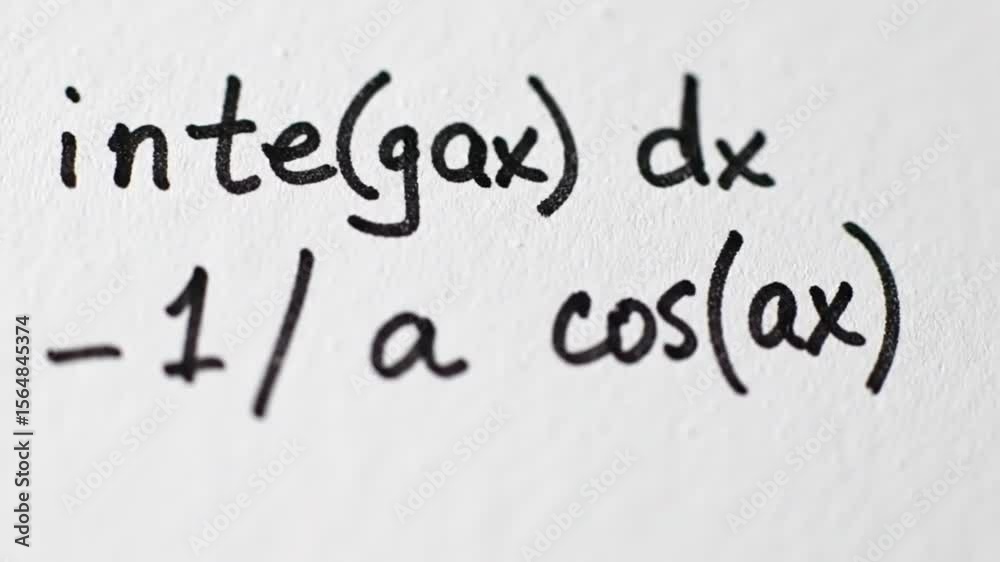 inte(gax) dx
-1/a cos(ax)
Adobe Stock | #1564845374